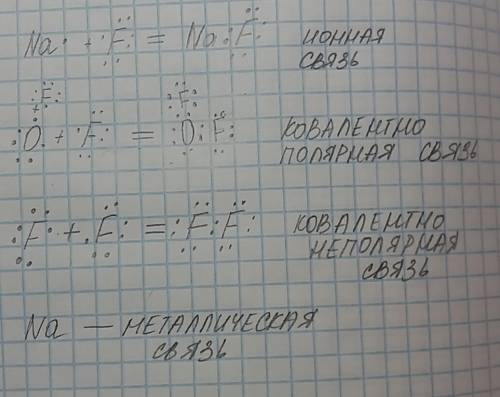 Na· + ·F: = Na:F: ИОННАЯ
СВЯЗЬ
:F:
+
:O· + ·F: = :O:F: КОВАЛЕНТНО
ПОЛЯРНАЯ СВЯЗЬ
:F:
:F· + ·F: = :F:F: КОВАЛЕНТНО
НЕПОЛЯРНАЯ
СВЯЗЬ
Na — МЕТАЛЛИЧЕСКАЯ
СВЯЗЬ